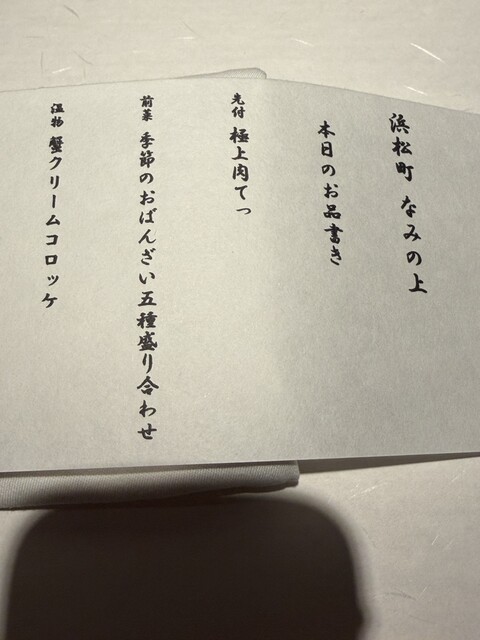 浜松町 なみの上
本日のお品書き
先付 極上肉てっ
前菜 季節のおばんざい五種盛り合わせ
温物 蟹クリームコロッケ